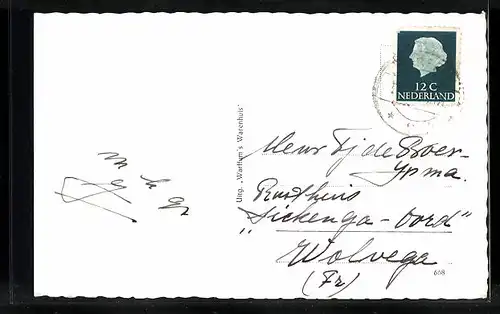 12 C
NEDERLAND
Uitg. „Warthem's Warenhuis"
m h g
Mevr Tj de Boer-
Ypma.
Rusthuis
„Sickenga-Oord"
Wolvega
(Fr)
668